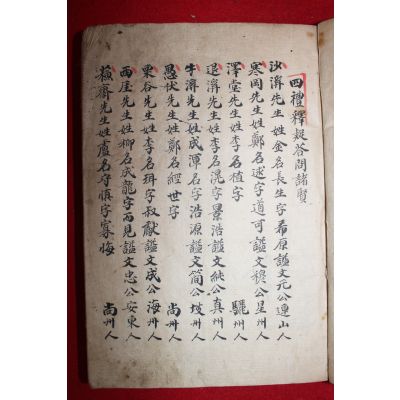 四禮釋疑答問諸賢
沙溪先生姓金名長生字希原謚文元公連山人
寒岡先生姓鄭名逑字道可謚文穆公星州人
澤堂先生姓李名植字 驪州人
退溪先生姓李名滉字景浩謚文純公真州人
牛溪先生姓成渾名字浩源謚文簡公坡州人
愚伏先生姓鄭名經世字 尚州人
栗谷先生姓李名珥字叔獻謚文成公海州人
西厓先生姓柳名成龍字而見謚文忠公安東人
蘇齋先生姓盧名守愼字寡悔 尚州人